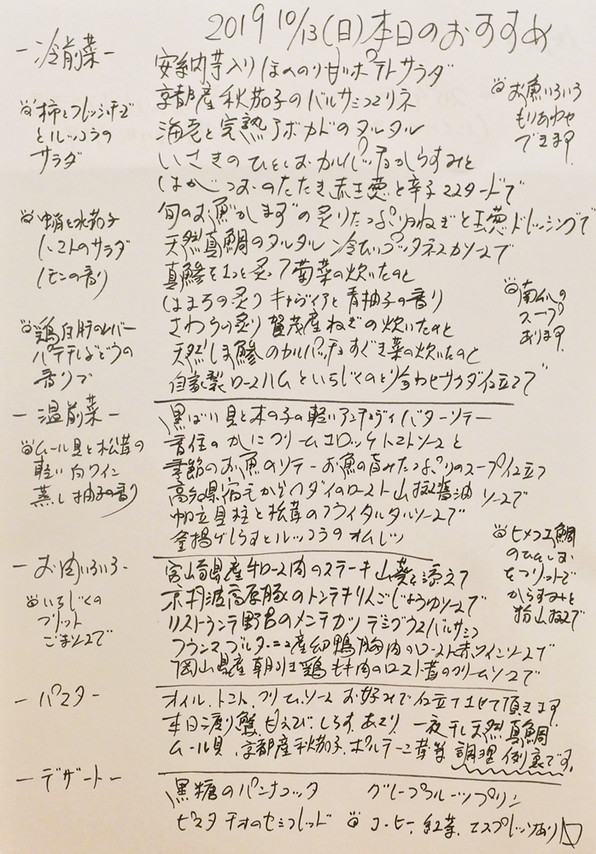 2019 10/13(日)本日のおすすめ
－冷前菜－
安納芋入り ほんのり甘いポテトサラダ
京都産 秋茄子のバルサミコマリネ
海老と完熟アボカドのタルタル
いさきのひとしおカルパッチョ からすみと
はがつおのたたき 赤玉葱と辛子マスタードで
旬のお魚かますの炙り たっぷり月ねぎと玉葱ドレッシングで
天然真鯛のタルタル 冷たいプッタネスカソースで
真鯵を炙って 菊菜の炊いたのと
はまちの炙り キャヴィアと青柚子の香り
さわらの炙り 賀茂産ねぎの炊いたのと
天然しま鯵のカルパッチョ すぐき菜の炊いたのと
自家製ロースハムといちじくのとり合わせ サラダ仕立で
柿とフレッシュチーズ
とルッコラの
サラダ
蛸と水茄子
トマトのサラダ
レモンの香り
鶏白肝のレバー
パテ ぶどうの
香りで
お魚いろいろ
もりあわせ
できます
南仏の
スープ
あります
－温前菜－
黒ばい貝と木の子の軽いアンチョヴィバターソテー
香住のかにクリームコロッケ トマトソースと
季節のお魚のソテー お魚の旨みたっぷりのスープ仕立
高知県宿毛から イダイのロースト 山椒醤油ソースで
帆立貝柱と松茸のフライ タルタルソースで
釜揚げしらすとルッコラのオムレツ
ムール貝と松茸の
軽い白ワイン
蒸し 柚子の香り
ヒメコ鯛
のひとしお
をフリットで
からすみと
粉山椒で
－お肉いろいろ－
宮崎県産牛ロース肉のステーキ 山葵を添えて
京丹波高原豚のトンテキ りんごじょうゆソースで
リストランテ野呂のメンチカツ デミグラスバルサミコ
フランス ブルターニュ産 幼鴨胸肉のロースト 赤ワインソースで
岡山県産 朝引き鶏もも肉のロースト 茸のクリームソースで
いちじくの
フリット
ごまソースで
－パスタ－
オイル、トマト、クリームソース お好みで仕立てさせて頂きます
本日 渡り蟹、甘えび、しらす、あさり、一夜干し天然真鯛
ムール貝、京都産秋茄子、ポルチーニ茸等 調理例です。
－デザート－
黒糖のパンナコッタ グレープフルーツプリン
ピスタチオのセミフレッド コーヒー、紅茶、エスプレッソあり